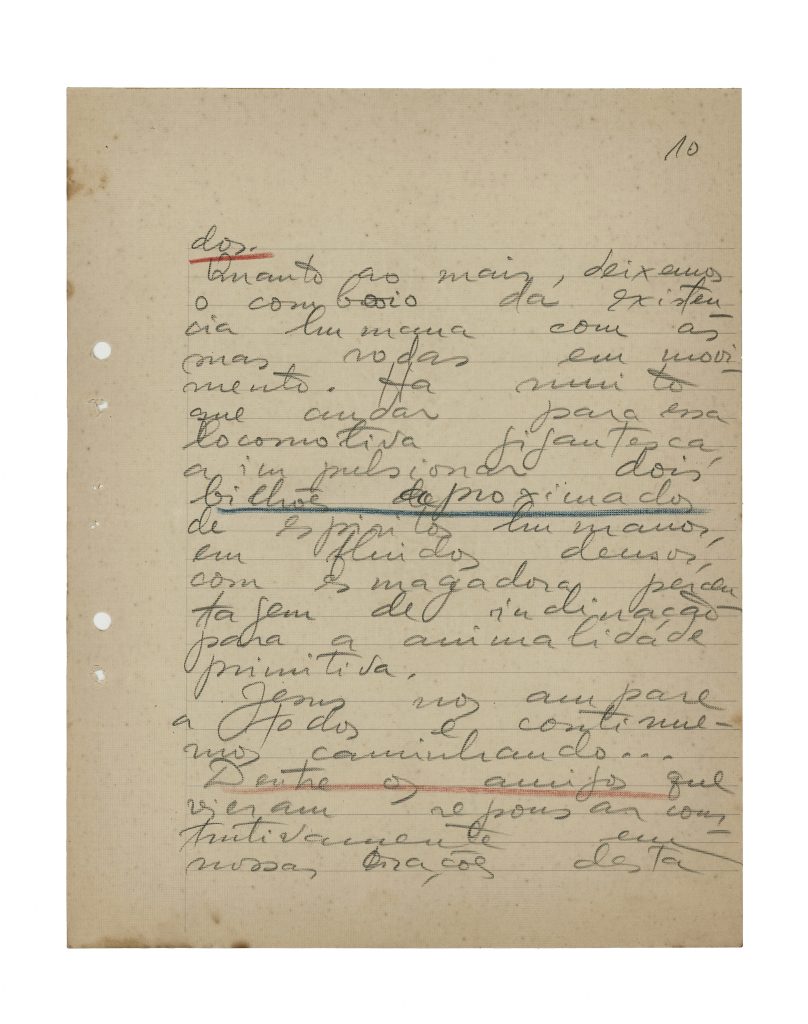 10
dos.
Quanto ao mais, deixemos
o comboio da existen
cia humana com as
mas rodas em movi-
mento. Ha muito
que andar para essa
locomotiva gigantesca,
a impulsionar dois
bilhões aproximados
de espiritos humanos,
em fluidos densos,
com esmagadora percen
tagem de inclinação
para a animalidade
primitiva.
Jesus nos ampare
a todos e continue-
mos caminhando...
Dentre os amigos que
vieram repousar cons
trutivamente em
nossas orações desta